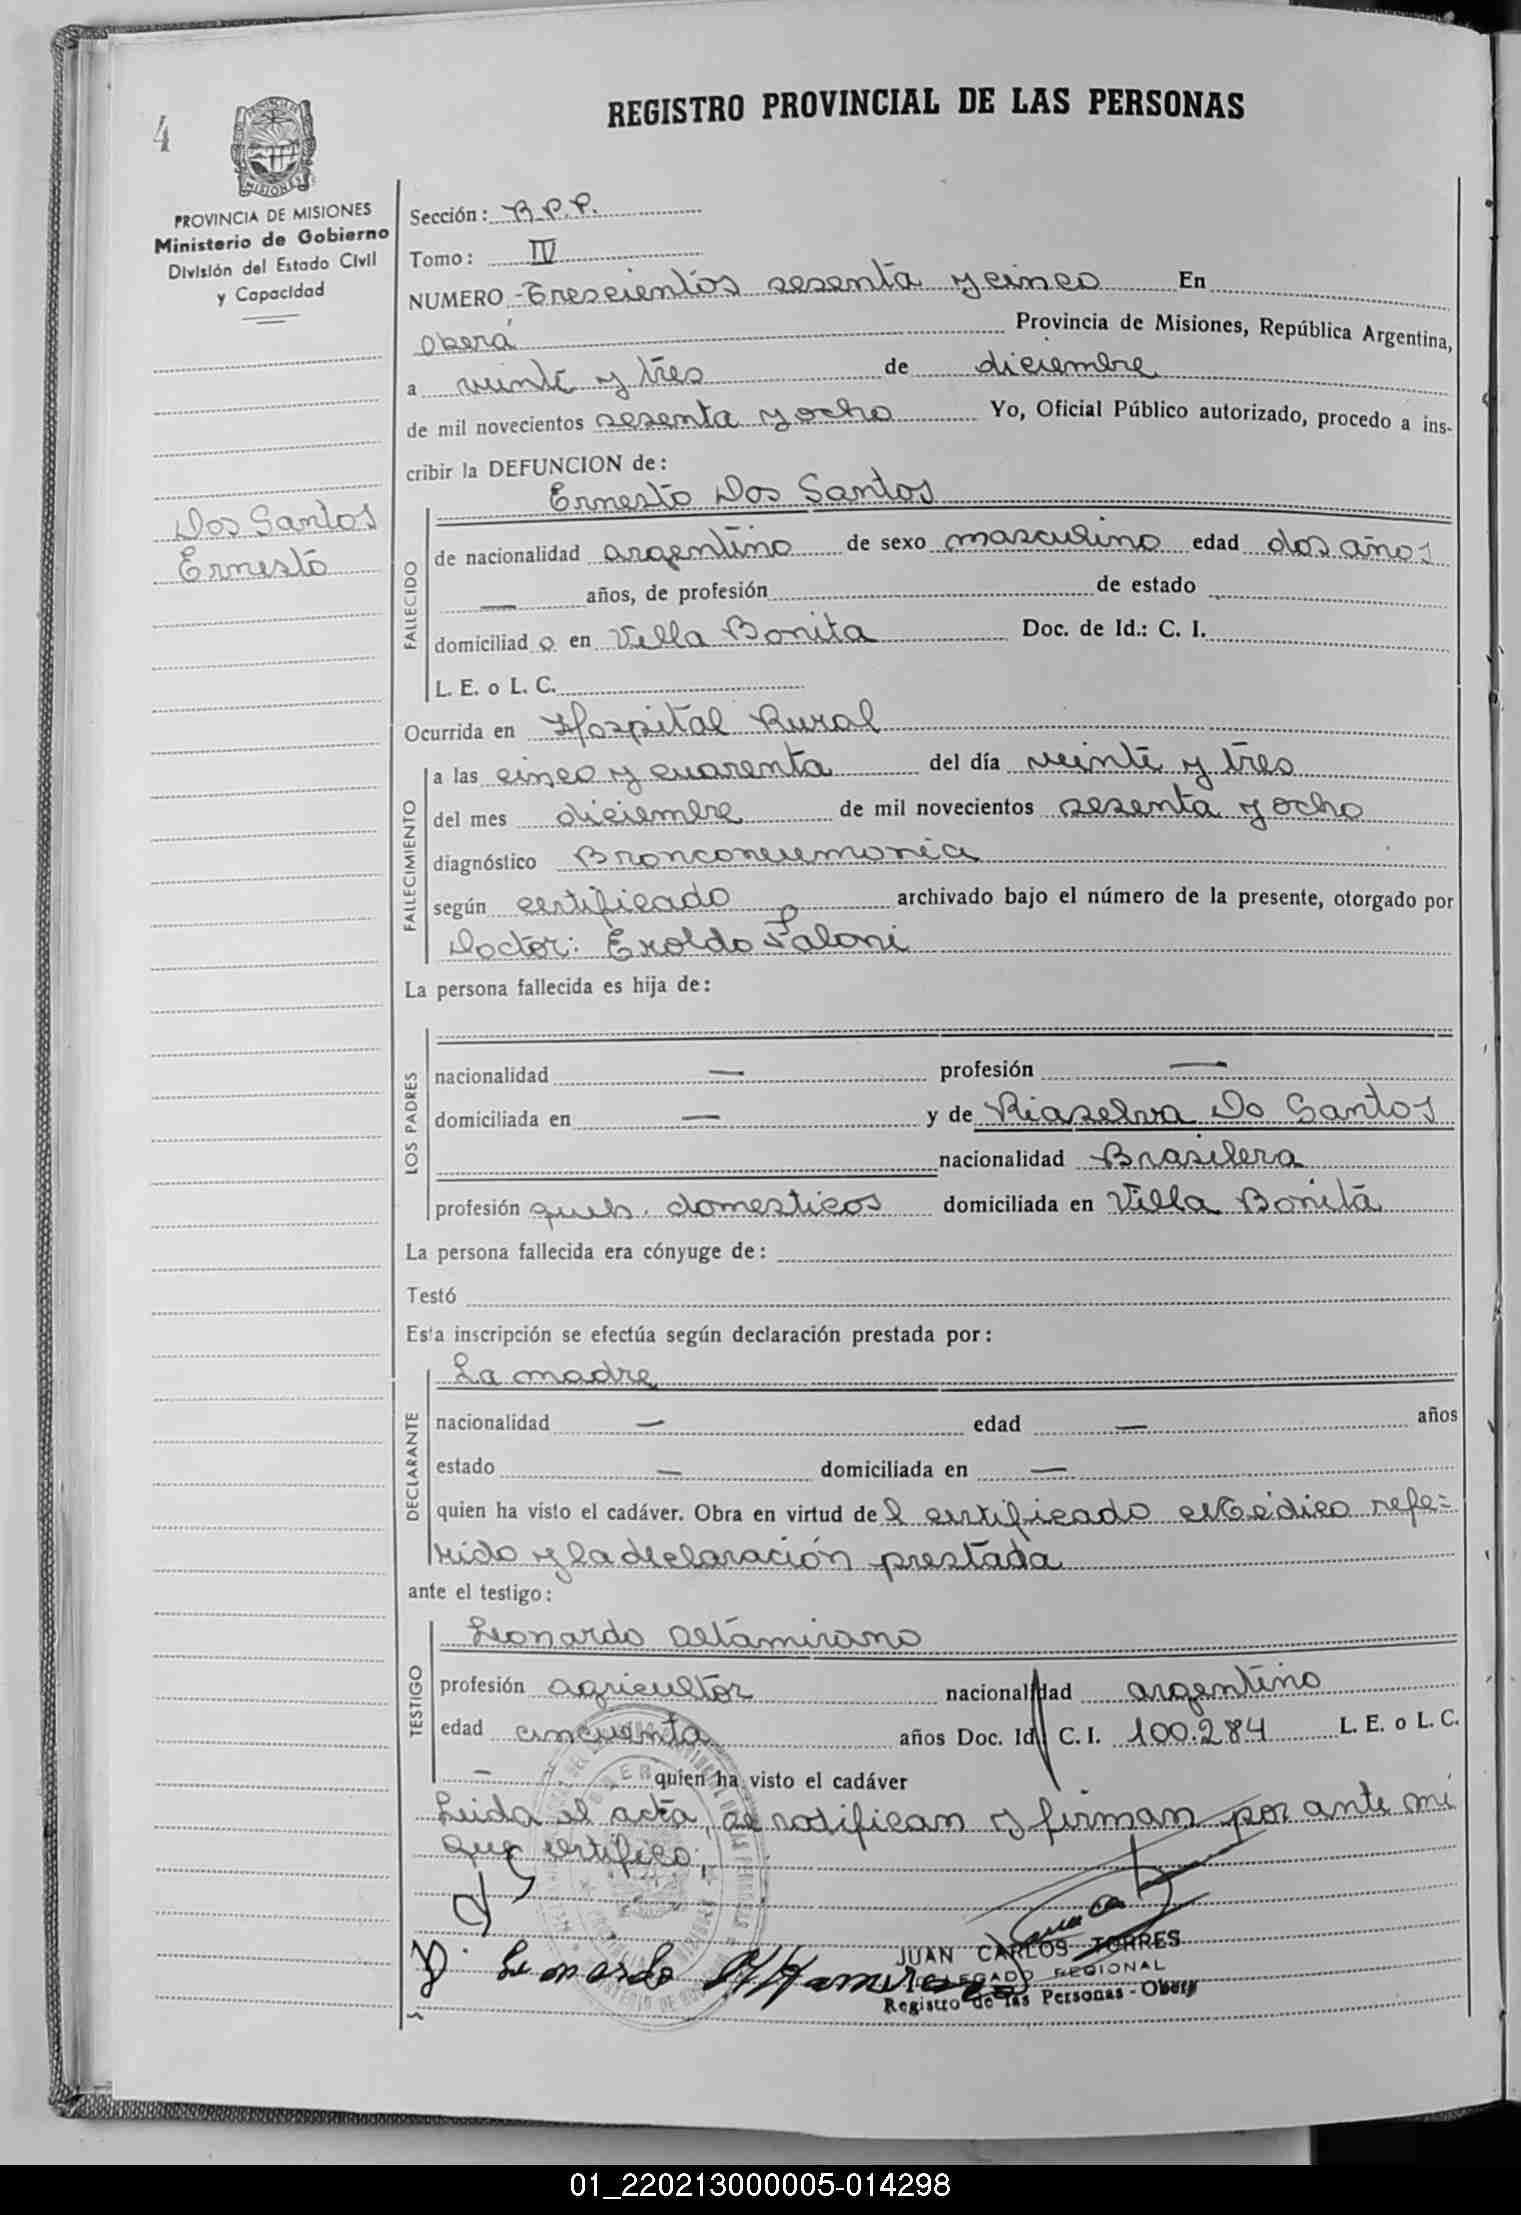 4
REGISTRO PROVINCIAL DE LAS PERSONAS
MISIONES
PROVINCIA DE MISIONES
Ministerio de Gobierno
División del Estado Civil
y Capacidad
Dos Santos
Ernesto
Sección: R.P.P.
Tomo: IV
NUMERO Trescientos sesenta y cinco En
Oberá Provincia de Misiones, República Argentina,
a veinte y tres de diciembre
de mil novecientos sesenta y ocho Yo, Oficial Público autorizado, procedo a ins-
cribir la DEFUNCION de:
Ernesto Dos Santos
FALLECIDO
de nacionalidad argentino de sexo masculino edad dos años
— años, de profesión de estado
domiciliad o en Villa Bonita Doc. de Id.: C. I.
L. E. o L. C.
Ocurrida en Hospital Rural
FALLECIMIENTO
a las cinco y cuarenta del día veinte y tres
del mes diciembre de mil novecientos sesenta y ocho
diagnóstico Bronconeumonia
según certificado archivado bajo el número de la presente, otorgado por
Doctor: Eroldo Faloni
La persona fallecida es hija de:
LOS PADRES
nacionalidad — profesión —
domiciliada en — y de Riaselva Do Santos
nacionalidad Brasilera
profesión queh. domesticos domiciliada en Villa Bonita
La persona fallecida era cónyuge de:
Testó
Esta inscripción se efectúa según declaración prestada por:
La madre
DECLARANTE
nacionalidad — edad — años
estado — domiciliada en —
quien ha visto el cadáver. Obra en virtud de l certificado Médico refe=
rido y la declaración prestada
ante el testigo:
Leonardo Altamirano
TESTIGO
profesión agricultor nacionalidad argentino
edad cincuenta años Doc. Id. C. I. 100.284 L. E. o L. C.
— quien ha visto el cadáver
Leida el acta, se ratifican y firman por ante mi
que certifico;
Leonardo Altamirano
JUAN CARLOS TORRES
DELEGADO REGIONAL
Registro de las Personas - Oberá
01_220213000005-014298